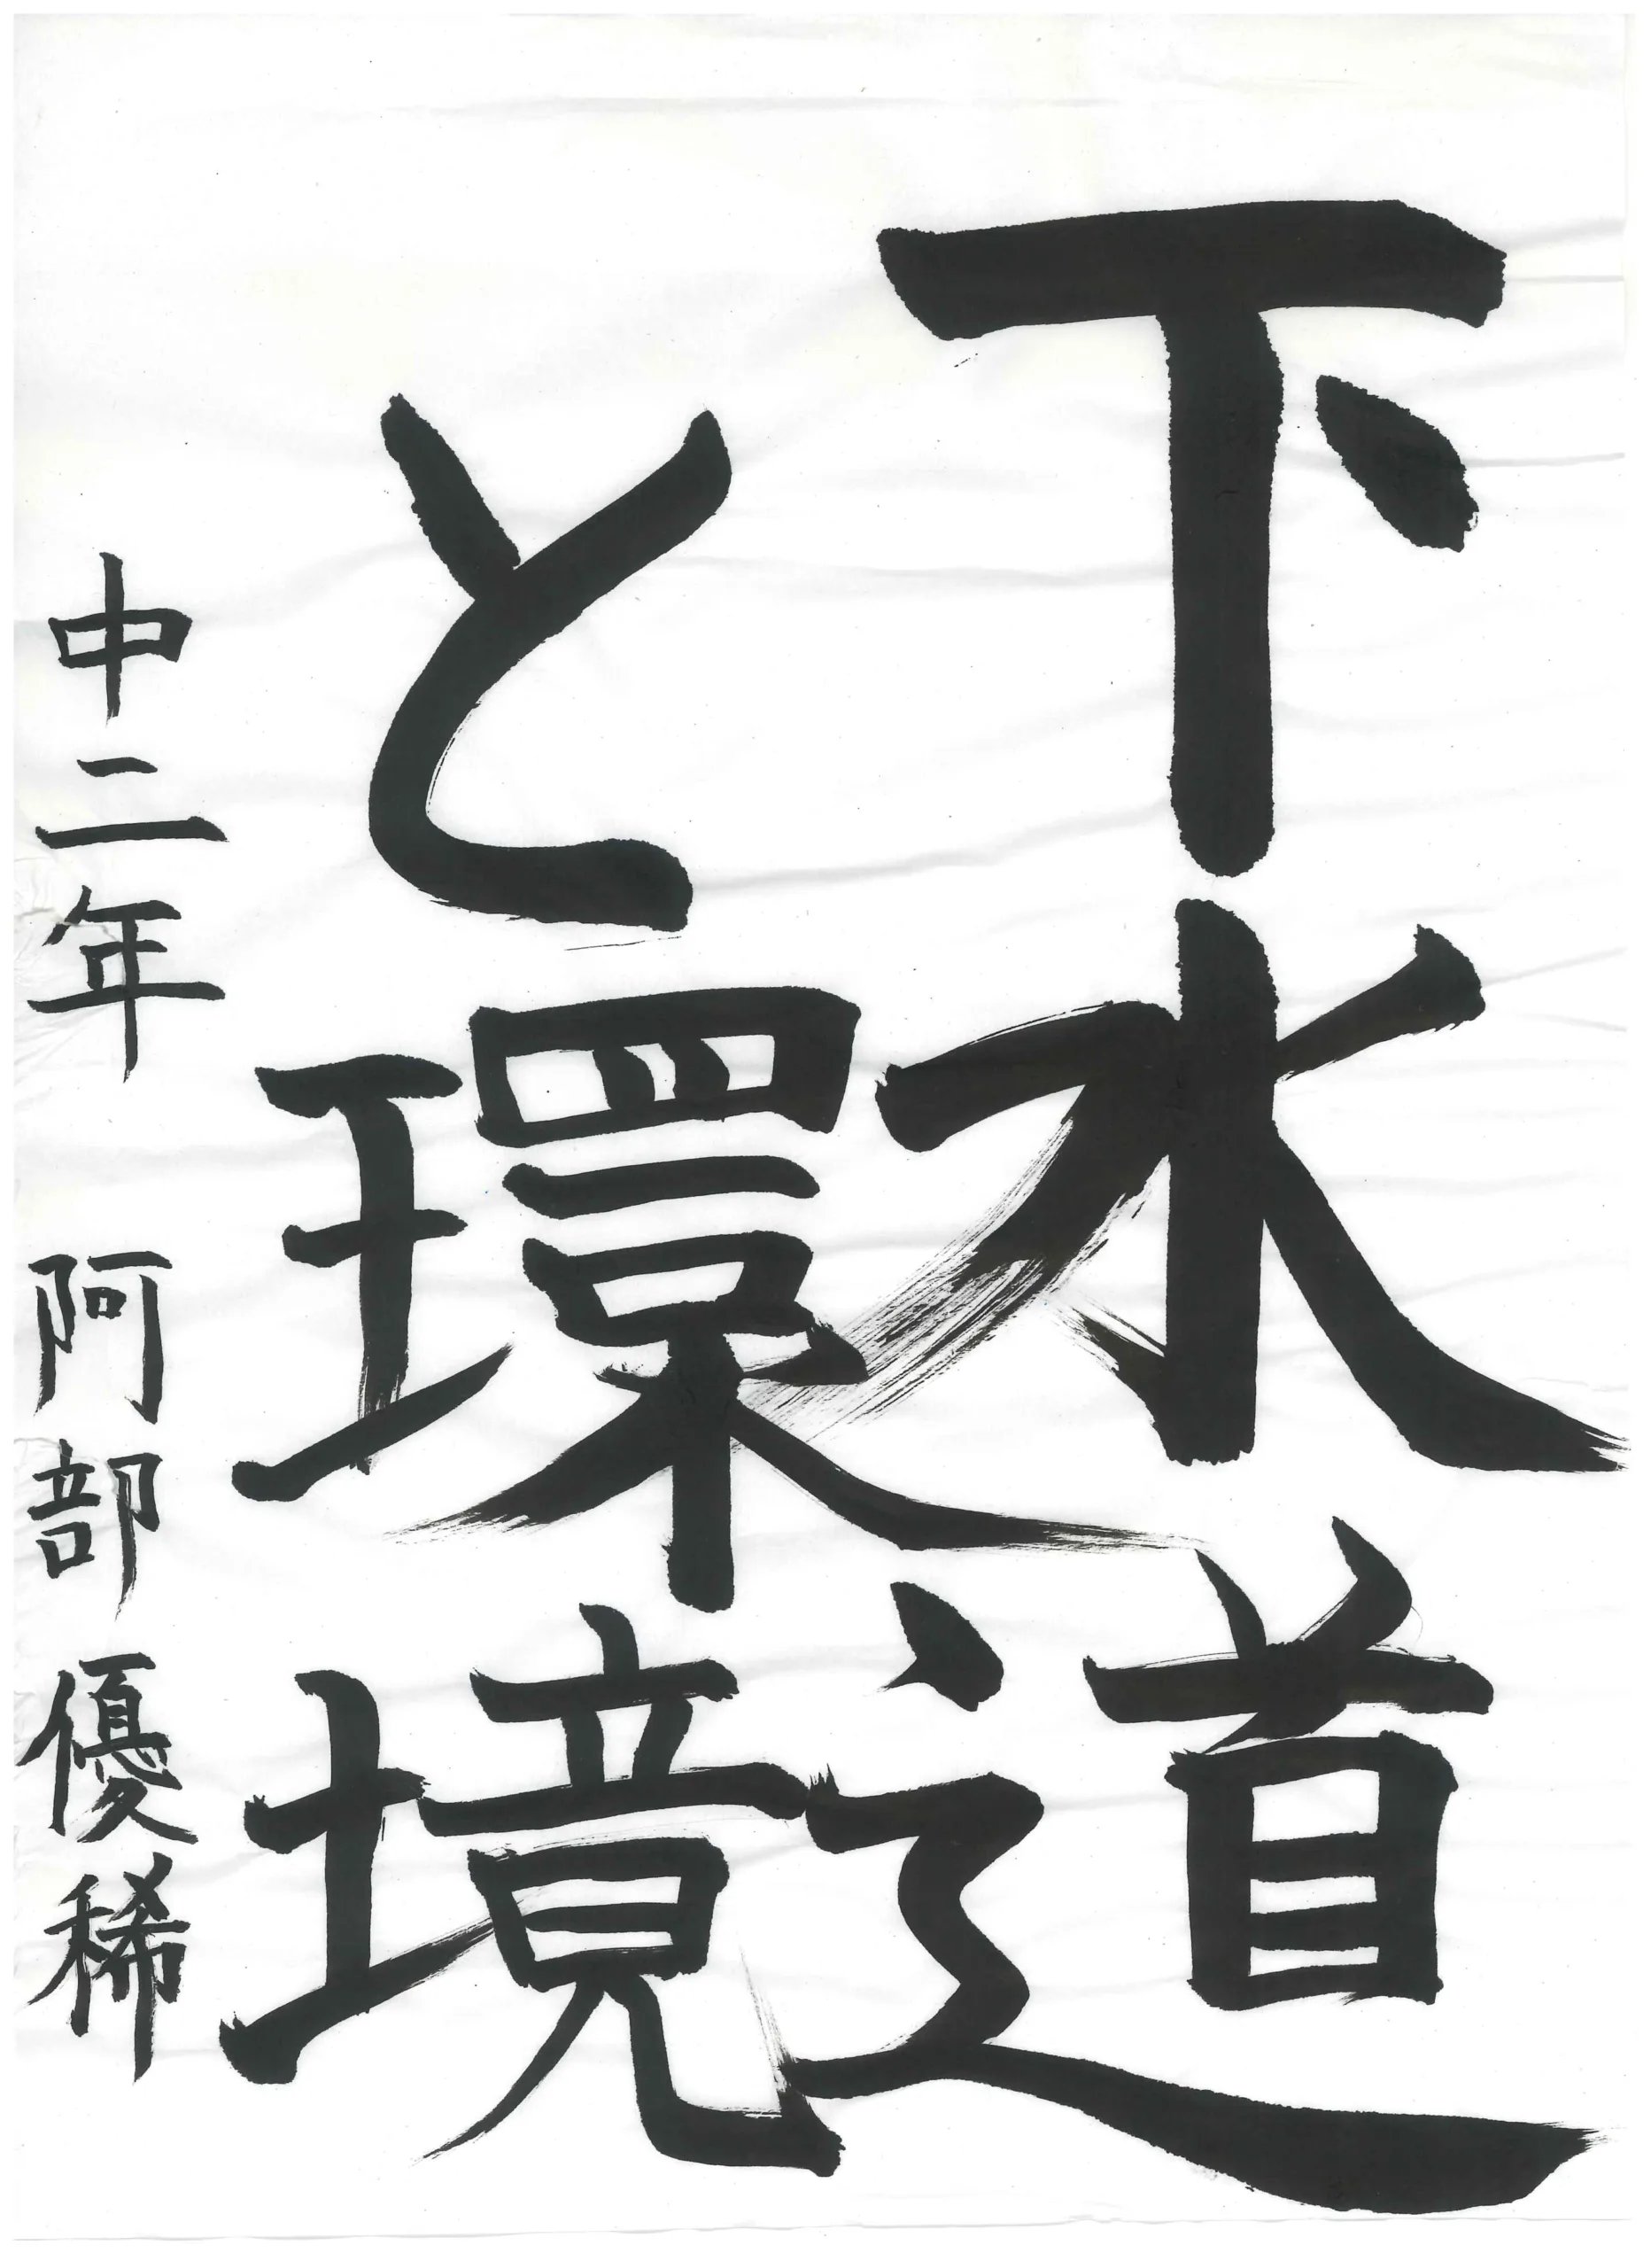 下水道
と環境
中二年 阿部優稀